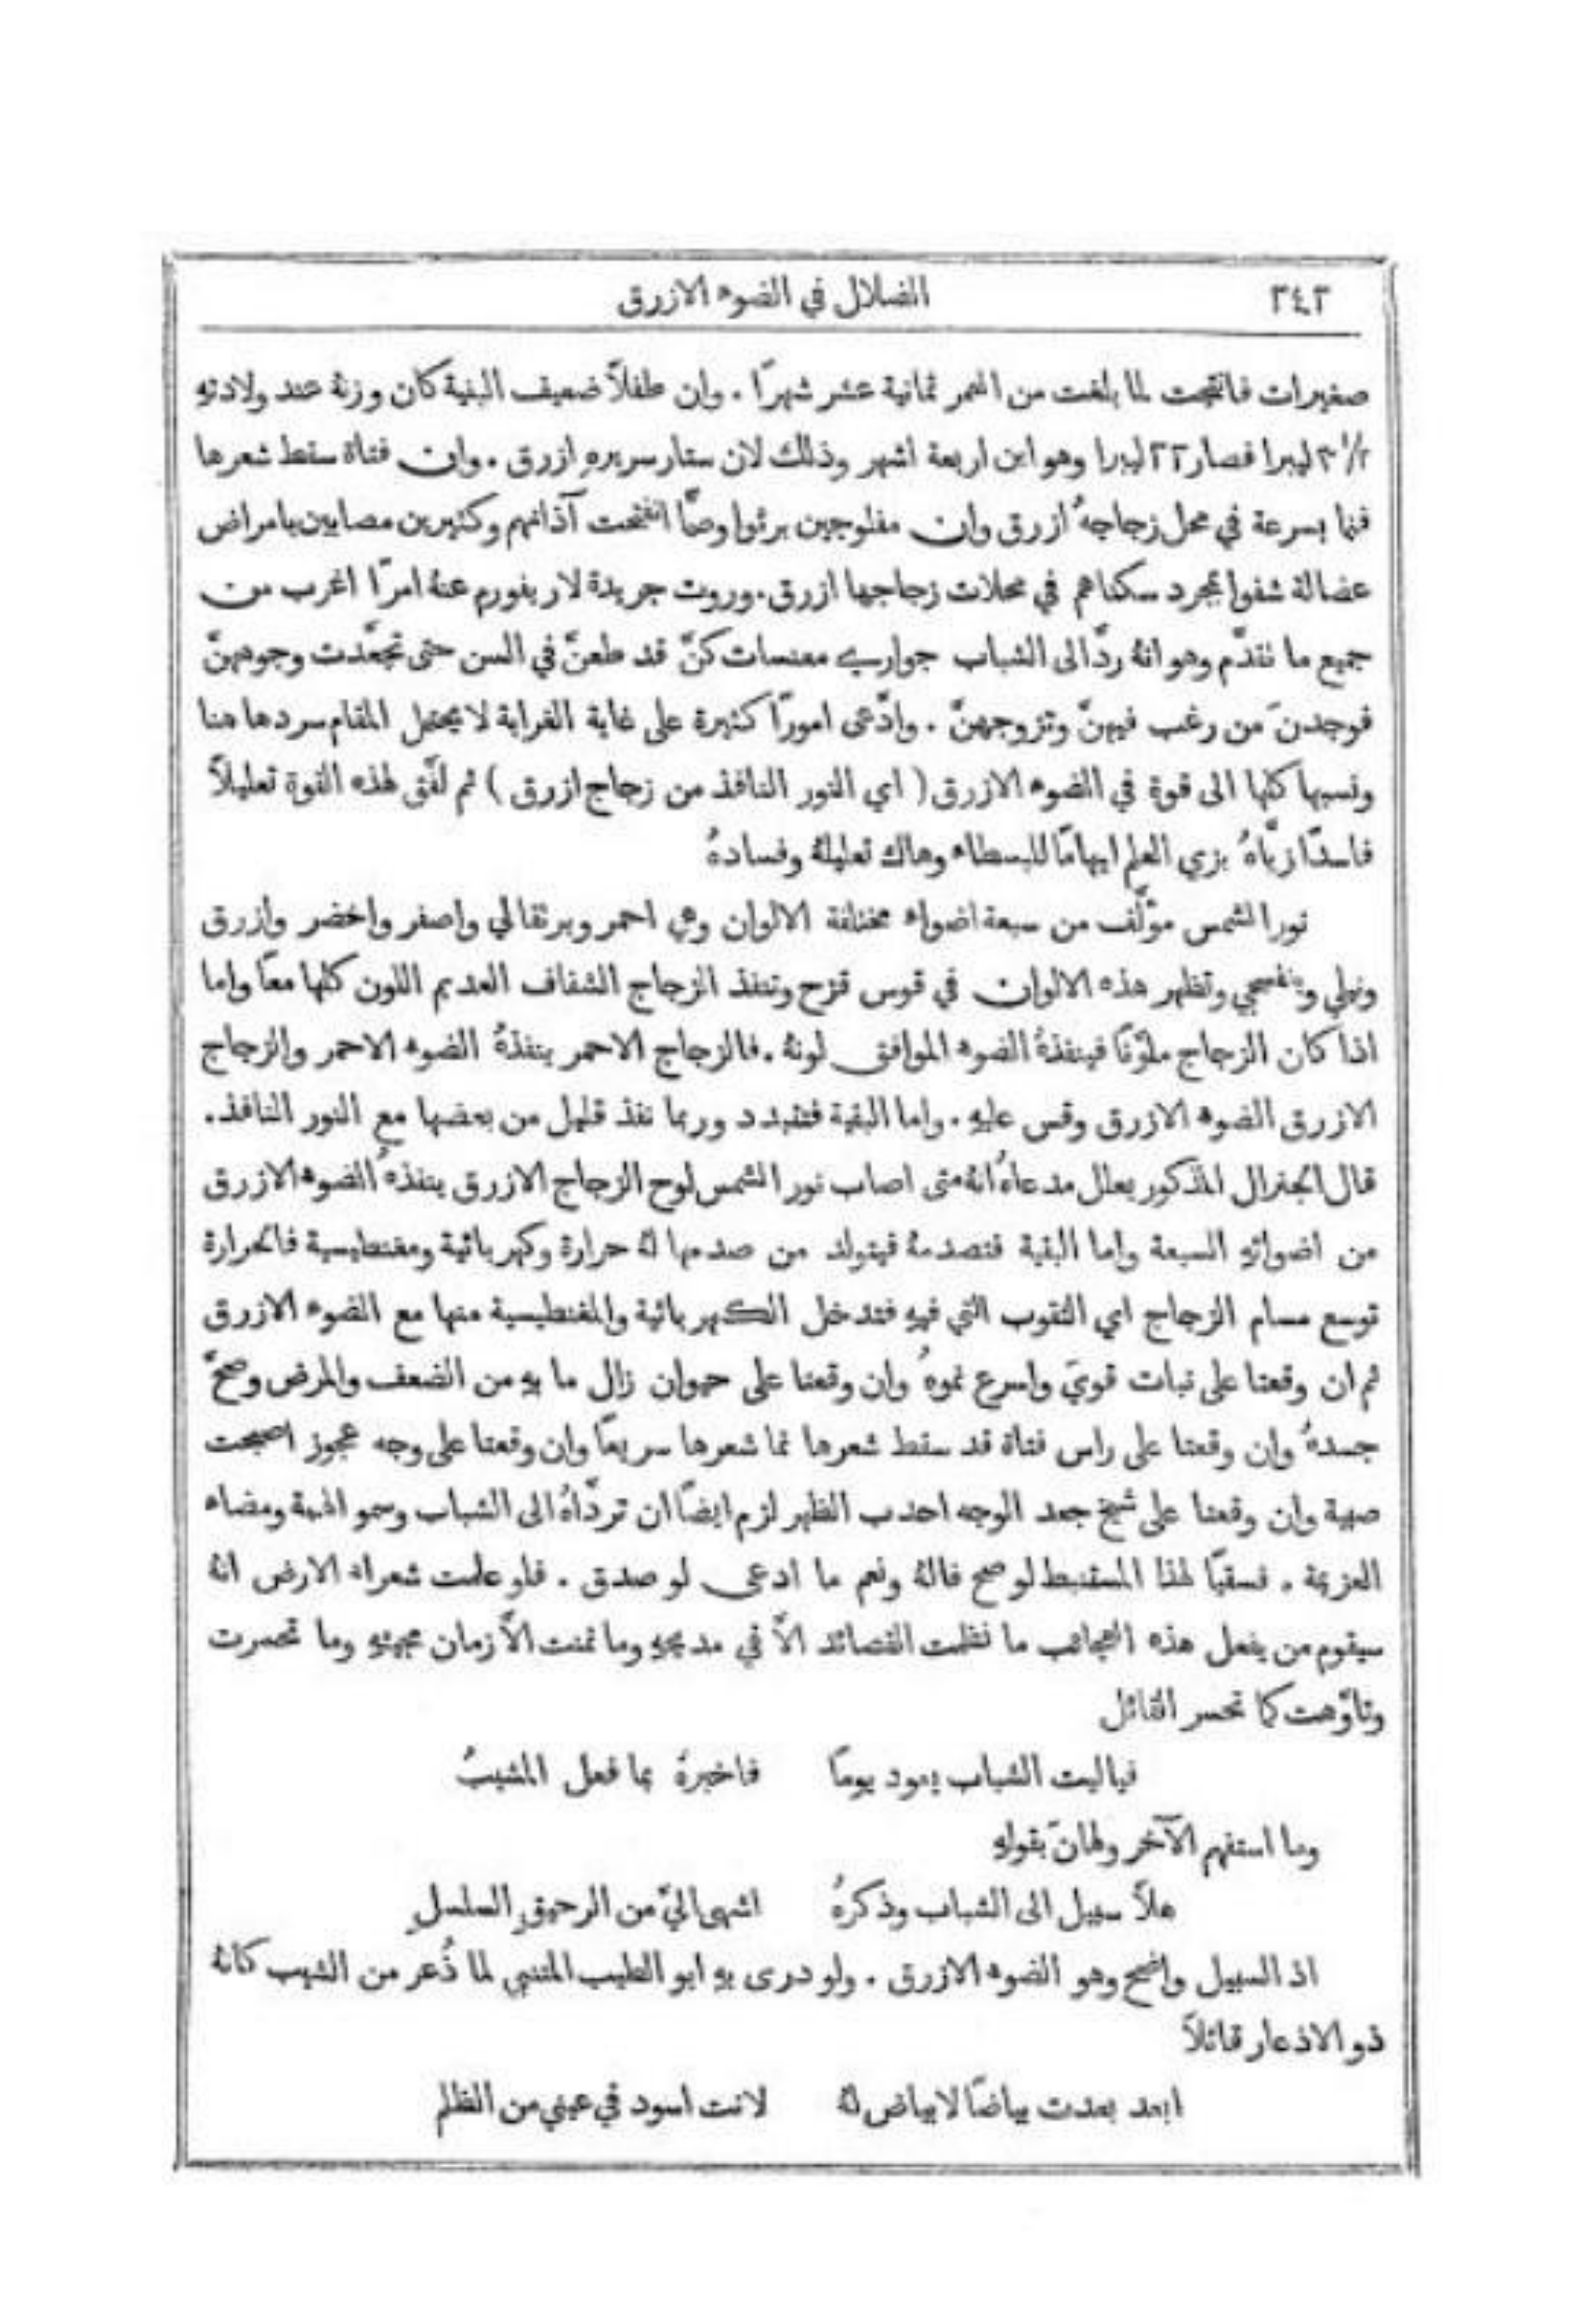 ٢٤٢ الضلال في الضوء الازرق
صغيرات فانتجت لما بلغت من العمر ثمانية عشر شهرًا . وان طفلاً ضعيف البنية كان وزنهُ عند ولادتهِ
ليبرا فصار ٢٢ ليبرا وهو ابن اربعة اشهر وذلك لان ستار سريرهِ ازرق . وان فتاة سقط شعرها
فنما بسرعة في محل زجاجهُ ازرق وان مفلوجين برئوا وصمًّا انفتحت آذانهم وكثيرين مصابين بامراض
عضالة شفوا بمجرد سكناهم في محلات زجاجها ازرق . وروت جريدة لاريفورم عنهُ امرًا اغرب من
جميع ما تقدَّم وهو انهُ ردَّ الى الشباب جواري معنسات كنَّ قد طعنَّ في السن حتى تجعَّدت وجوههنَّ
فوجدنَ من رغب فيهنَّ وتزوجهنَّ . وادَّعى امورًا كثيرة على غاية الغرابة لا يحتمل المقام سردها هنا
ونسبها كلها الى قوة في الضوء الازرق ( اي النور النافذ من زجاج ازرق ) ثم لفَّق لهذه القوة تعليلاً
فاسدًا زيَّاهُ بزي العلم ايهامًا للبسطاء وهاك تعليلهُ وفسادهُ
نور الشمس مؤلَّف من سبعة اضواء مختلفة الالوان وهي احمر وبرتقالي واصفر واخضر وازرق
ونيلي وبنفسجي وتظهر هذه الالوان في قوس قزح وتنفذ الزجاج الشفاف العديم اللون كلها معًا واما
اذا كان الزجاج ملوَّنًا فينفذهُ الضوء الموافق لونهُ . فالزجاج الاحمر ينفذهُ الضوء الاحمر والزجاج
الازرق الضوء الازرق وقس عليهِ . واما البقية فتتبدد وربما نفذ قليل من بعضها مع النور النافذ .
قال الجنرال المذكور يعلل مدعاهُ انهُ متى اصاب نور الشمس لوح الزجاج الازرق ينفذهُ الضوء الازرق
من اضوائهِ السبعة واما البقية فتصدمهُ فيتولد من صدمها لهُ حرارة وكهربائية ومغنطيسية فالحرارة
توسع مسام الزجاج اي الثقوب التي فيهِ فتدخل الكهربائية والمغنطيسية منها مع الضوء الازرق
ثم ان وقعتا على نبات قويَ واسرع نموهُ وان وقعتا على حيوان زال ما بهِ من الضعف والمرض وصحَّ
جسدهُ وان وقعتا على راس فتاة قد سقط شعرها نما شعرها سريعًا وان وقعتا على وجه عجوز اصبحت
صبية وان وقعتا على شيخ جعد الوجه احدب الظهر لزم ايضًا ان تردَّاهُ الى الشباب وسمو الهمة ومضاء
العزيمة . فسقيًا لهذا المستنبط لو صح فالهُ ونعم ما ادعى لو صدق . فلو علمت شعراء الارض انهُ
سيقوم من يفعل هذه العجائب ما نظمت القصائد الاَّ في مديحهِ وما تمنت الاَّ زمان مجيئهِ وما تحسرت
وتاوَّهت كما تحسر القائل
فياليت الشباب يعود يومًا فاخبرهُ بما فعل المشيبُ
وما استفهم الآخر ولهانَ بقولهِ
هلاَّ سبيل الى الشباب وذكرهُ اشهى اليَّ من الرحيقِ السلسلِ
اذ السبيل واضح وهو الضوء الازرق . ولو درى بهِ ابو الطيب المتنبي لما ذُعر من الشيب كانهُ
ذو الاذعار قائلاً
ابعد بعدت بياضًا لا بياض لهُ لانت اسود في عيني من الظلم